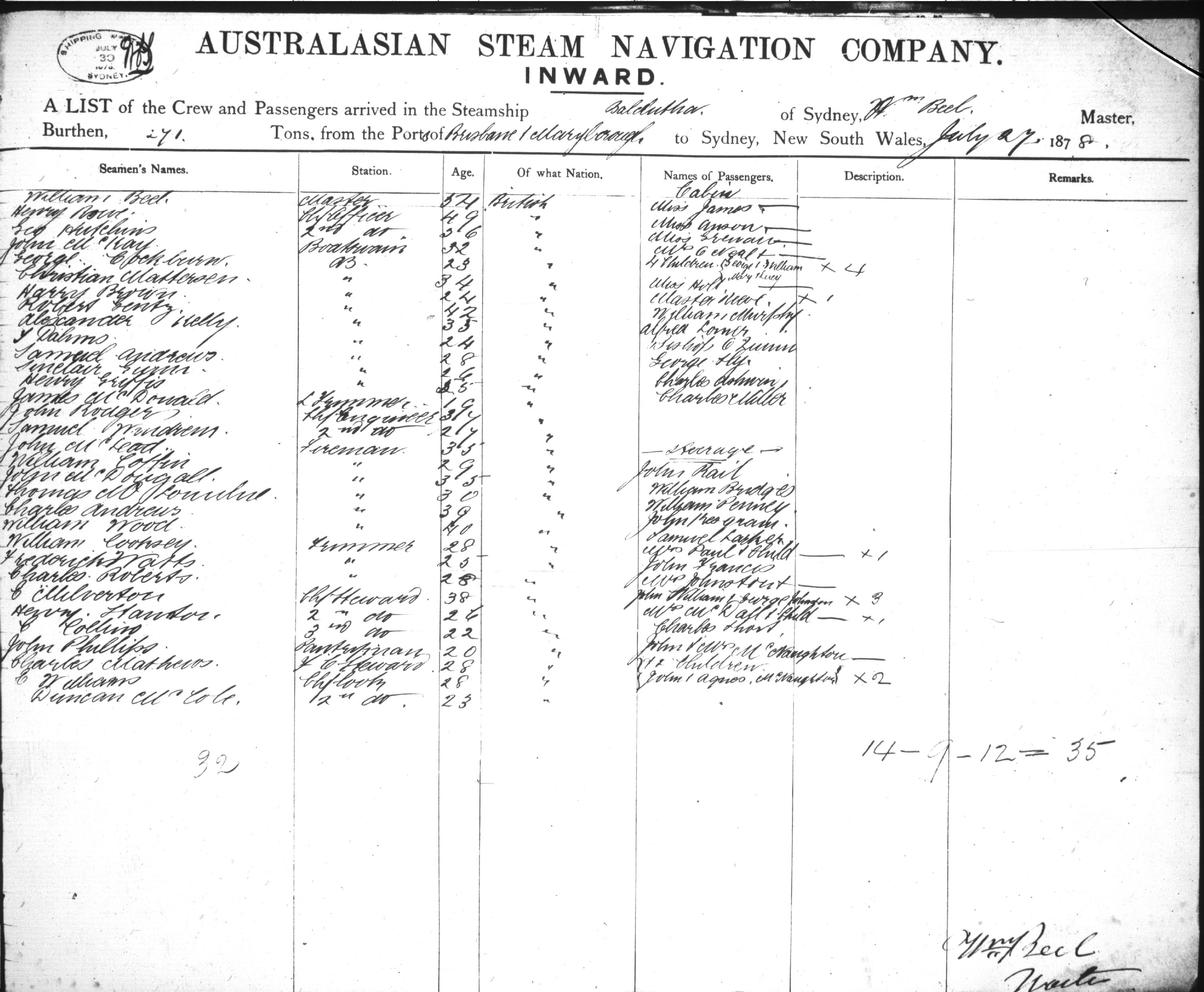 SHIPPING MASTER
JULY
30
1878
SYDNEY
AUSTRALASIAN STEAM NAVIGATION COMPANY.
INWARD.
A LIST of the Crew and Passengers arrived in the Steamship Balclutha. of Sydney, Wm Beel. Master,
Burthen, 271. Tons, from the Ports of Brisbane & Maryborough. to Sydney, New South Wales, July 27. 1878.
Seamen's Names. Station. Age. Of what Nation. Names of Passengers. Description. Remarks.
Cabin
William Beel. Master 54 British Miss James
Henry Rowe. Chf Officer 49 " Miss Anson
Geo Hutchins 2nd do 36 " Miss
John McKay Boatswain 32 " Mrs
George Cockburn. AB. 23 " 4 Children George William × 4
Christian Mattersen. " 34 " Miss Holt
Harry Brown. " 24 " Master × 1
Robert " 42 " William Murphy
Alexander Kelly. " 35 " Alfred
J Dahms " 24 " Bishop O'Quinn
Samuel Andrews. " 28 " George Hly
Sinclair " 26 " Charles Ashwin
Henry " 25 " Charles Miller
James McDonald. Trimmer 19 "
John Rodger Chf Engineer 37 "
Samuel 2nd do 27 "
John McLead. Fireman. 35 " Steerage
William Coffin " 29 " John Rail
John McDougall. " 35 " William Bridge
Thomas " 30 " William Penney
Charles Andrews " 39 " John
William Wood " 40 " Samuel
William Cooksey. Trimmer 28 " Mrs Paul & Child × 1
Frederick Watts " 25 " John Francis
Charles Roberts. " 28 " Mrs Johnston
C Milverton Chf Steward. 38 " John William & George Johnson × 3
Henry. 2nd do 26 " Mrs & Child × 1
C Collins 3rd do 22 " Charles Short,
John Phillips. Pantryman 20 " John & Mrs McNaughton
Charles Mathews. F C Steward. 28 " & 2 Children
C Williams Chf Cook 28 " John & Agnes McNaughton × 2
Duncan McCole. 2nd do. 23 "
32
14 - 9 - 12 = 35
Wm Beel
Master